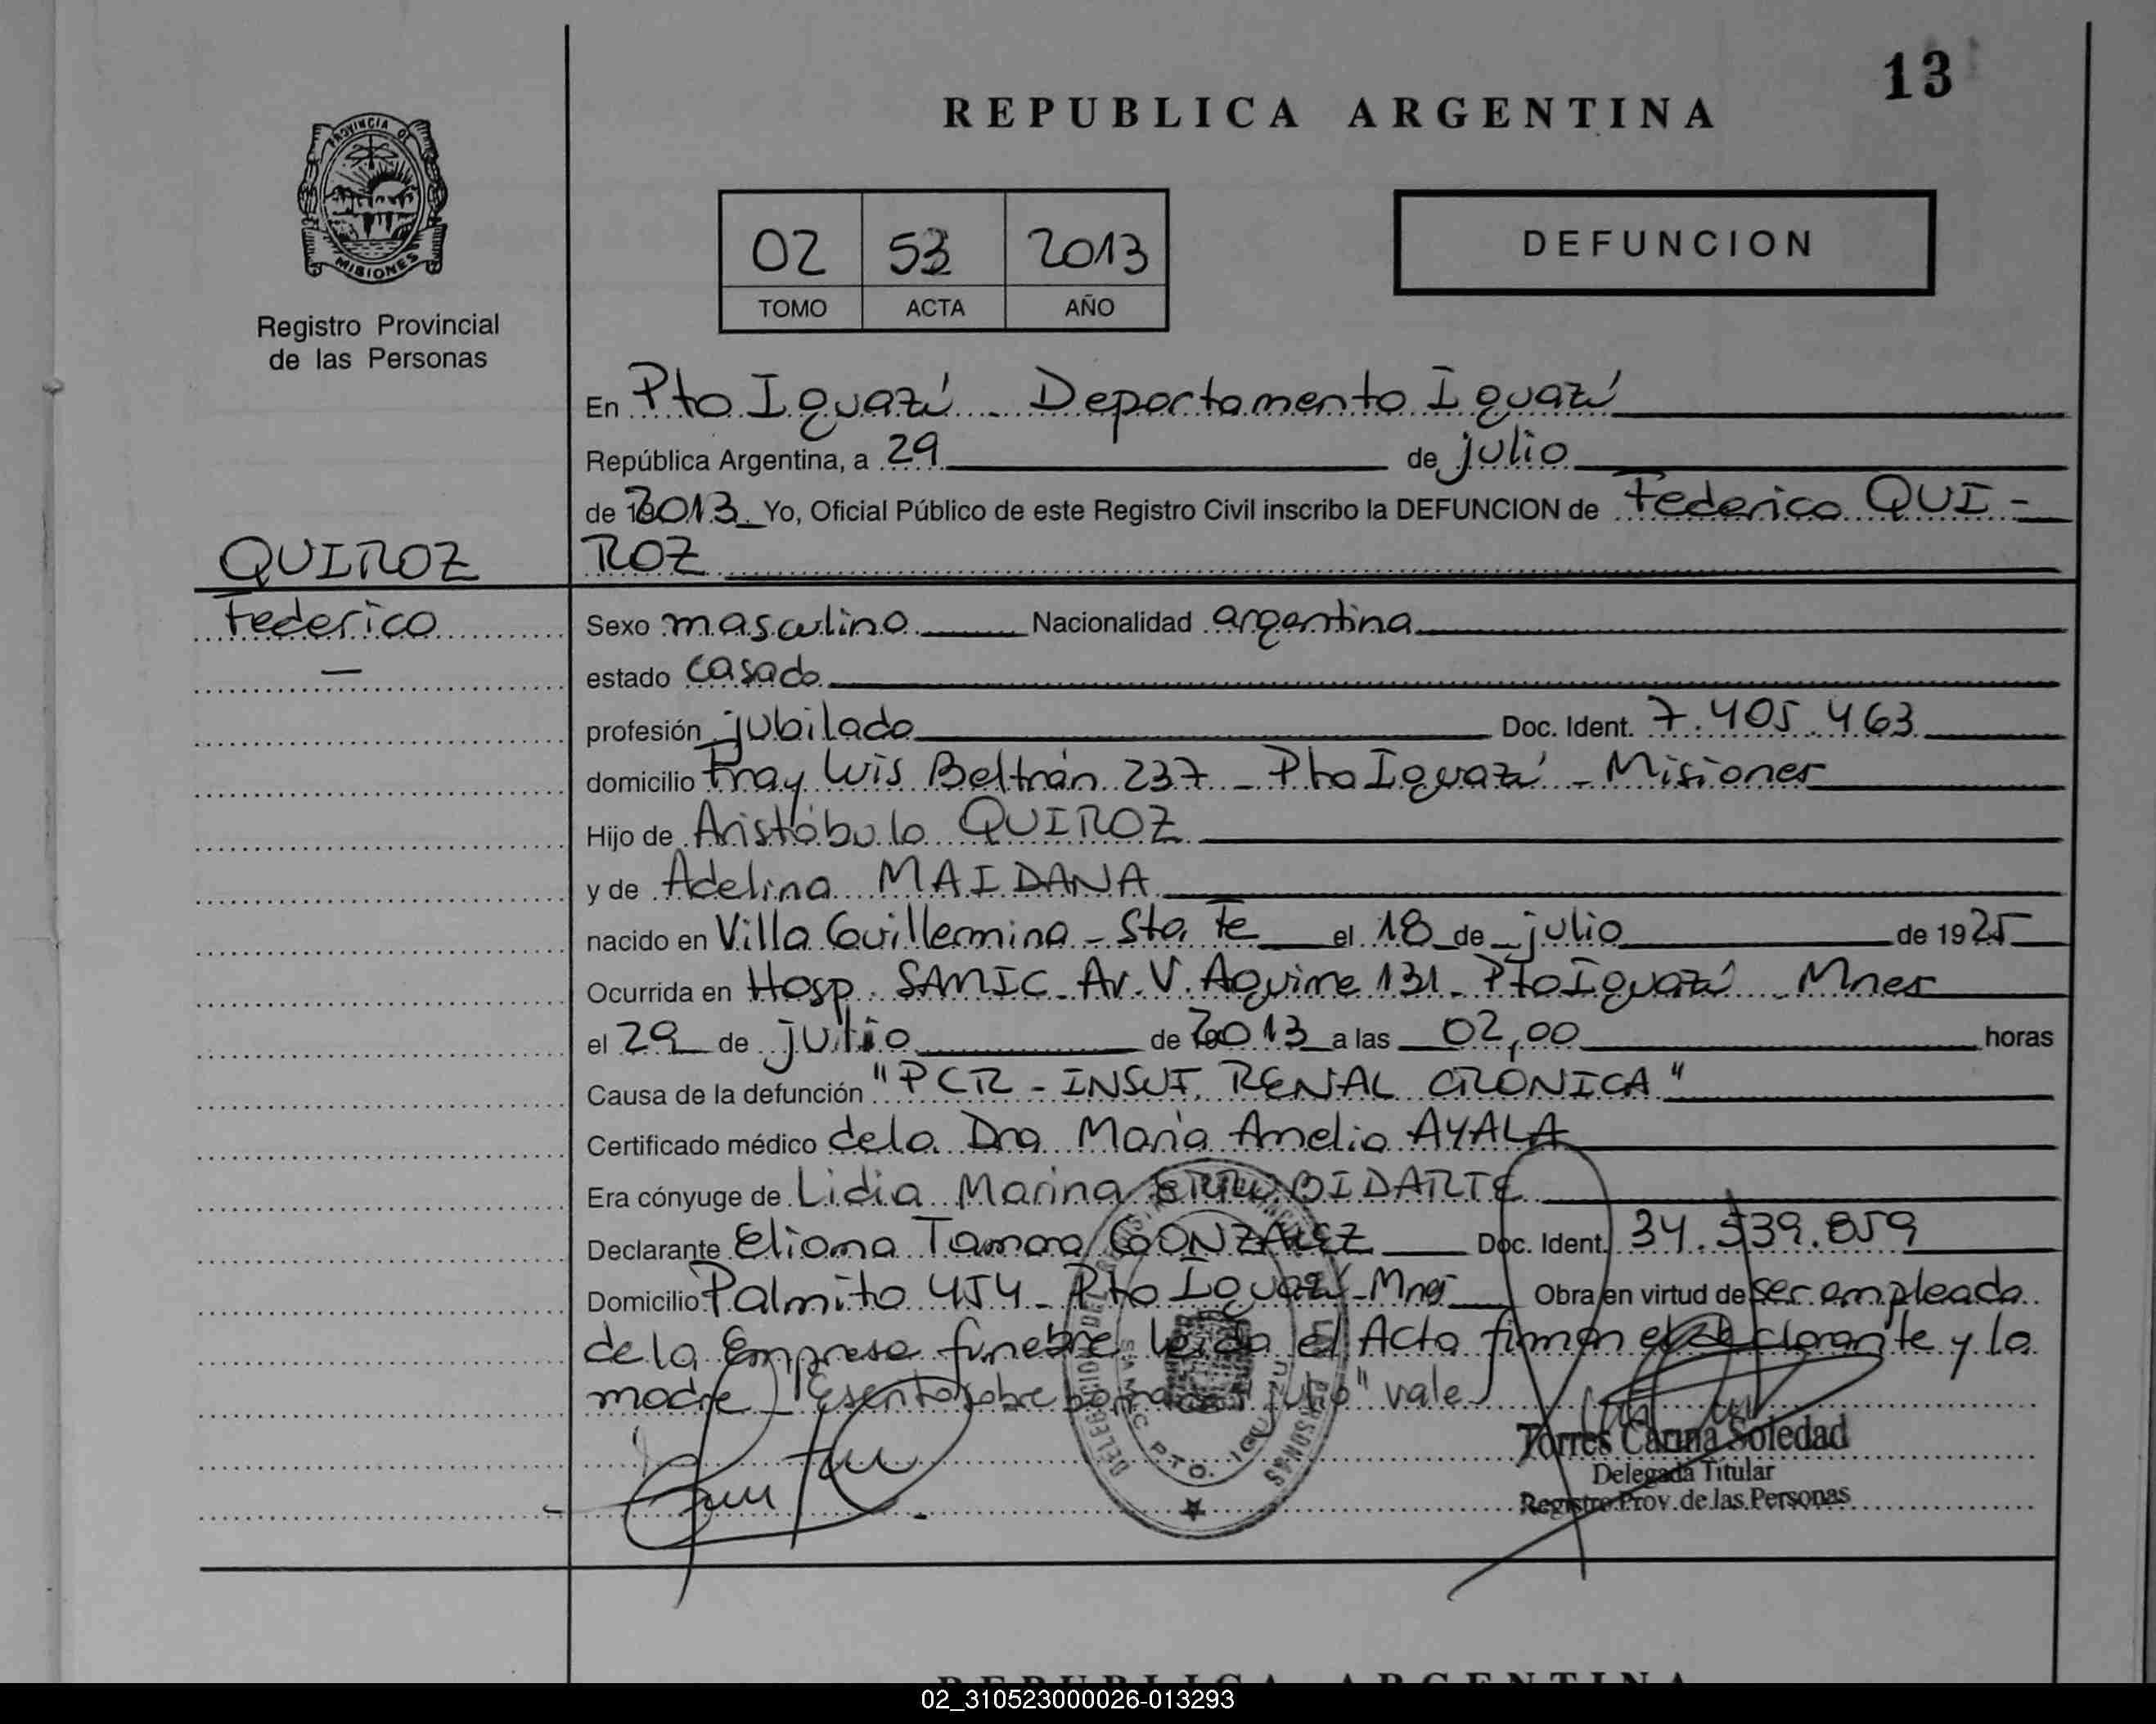 13
REPUBLICA ARGENTINA
PROVINCIA DE
MISIONES
Registro Provincial
de las Personas
02 53 2013
TOMO ACTA AÑO
DEFUNCION
En Pto Iguazú - Departamento Iguazú
República Argentina, a 29 de julio
de 2013 Yo, Oficial Público de este Registro Civil inscribo la DEFUNCION de Federico QUI-
ROZ
QUIROZ
Federico
Sexo masculino Nacionalidad argentina
estado casado
profesión jubilado Doc. Ident. 7.405.463
domicilio Fray Luis Beltrán 237 - Pto Iguazú - Misiones
Hijo de Aristóbulo QUIROZ
y de Adelina MAIDANA
nacido en Villa Guillermina - Sta. Fe el 18 de julio de 1925
Ocurrida en Hosp. SAMIC - Av. V. Aguirre 131 - Pto Iguazú - Mnes
el 29 de julio de 2013 a las 02,00 horas
Causa de la defunción "PCR - INSUF. RENAL CRONICA"
Certificado médico de la Dra María Amelia AYALA
Era cónyuge de Lidia Marina BIDARTE
Declarante Eliana Tamara GONZALEZ Doc. Ident. 34.539.859
Domicilio Palmito 454 - Pto Iguazú - Mnes Obra en virtud de ser empleada
de la Empresa fúnebre leída el Acta firman el declarante y la
madre "Escrito sobre borrado" "julio" vale
SAMIC PTO. IGUAZU
Torres Carina Soledad
Delegada Titular
Registro Prov. de las Personas
REPUBLICA ARGENTINA
02_310523000026-013293